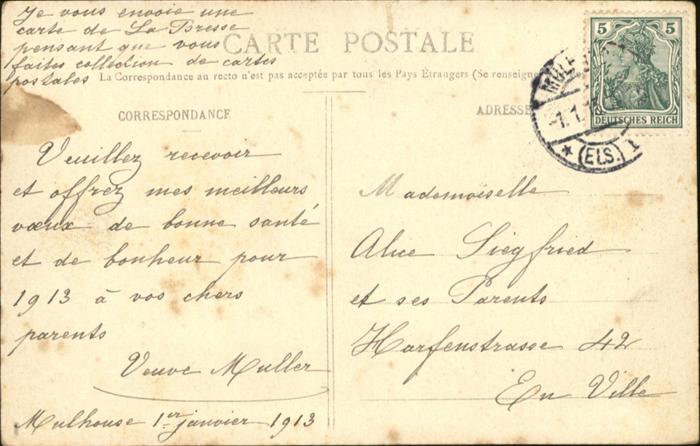 Je vous envoie une
carte de La Bresse
pensant que vous
faites collection de cartes
postales
CARTE POSTALE
La Correspondance au recto n'est pas acceptée par tous les Pays Étrangers (Se renseigne
CORRESPONDANCE
ADRESSE
5 5
DEUTSCHES REICH
-1.1.
* (ELS.) 1
Veuillez recevoir
et offrez mes meilleurs
vœux de bonne santé
et de bonheur pour
1913 à vos chers
parents
Veuve Muller
Mulhouse 1er janvier 1913
Mademoiselle
Alice Siegfried
et ses Parents
Harfenstrasse 42
En Ville